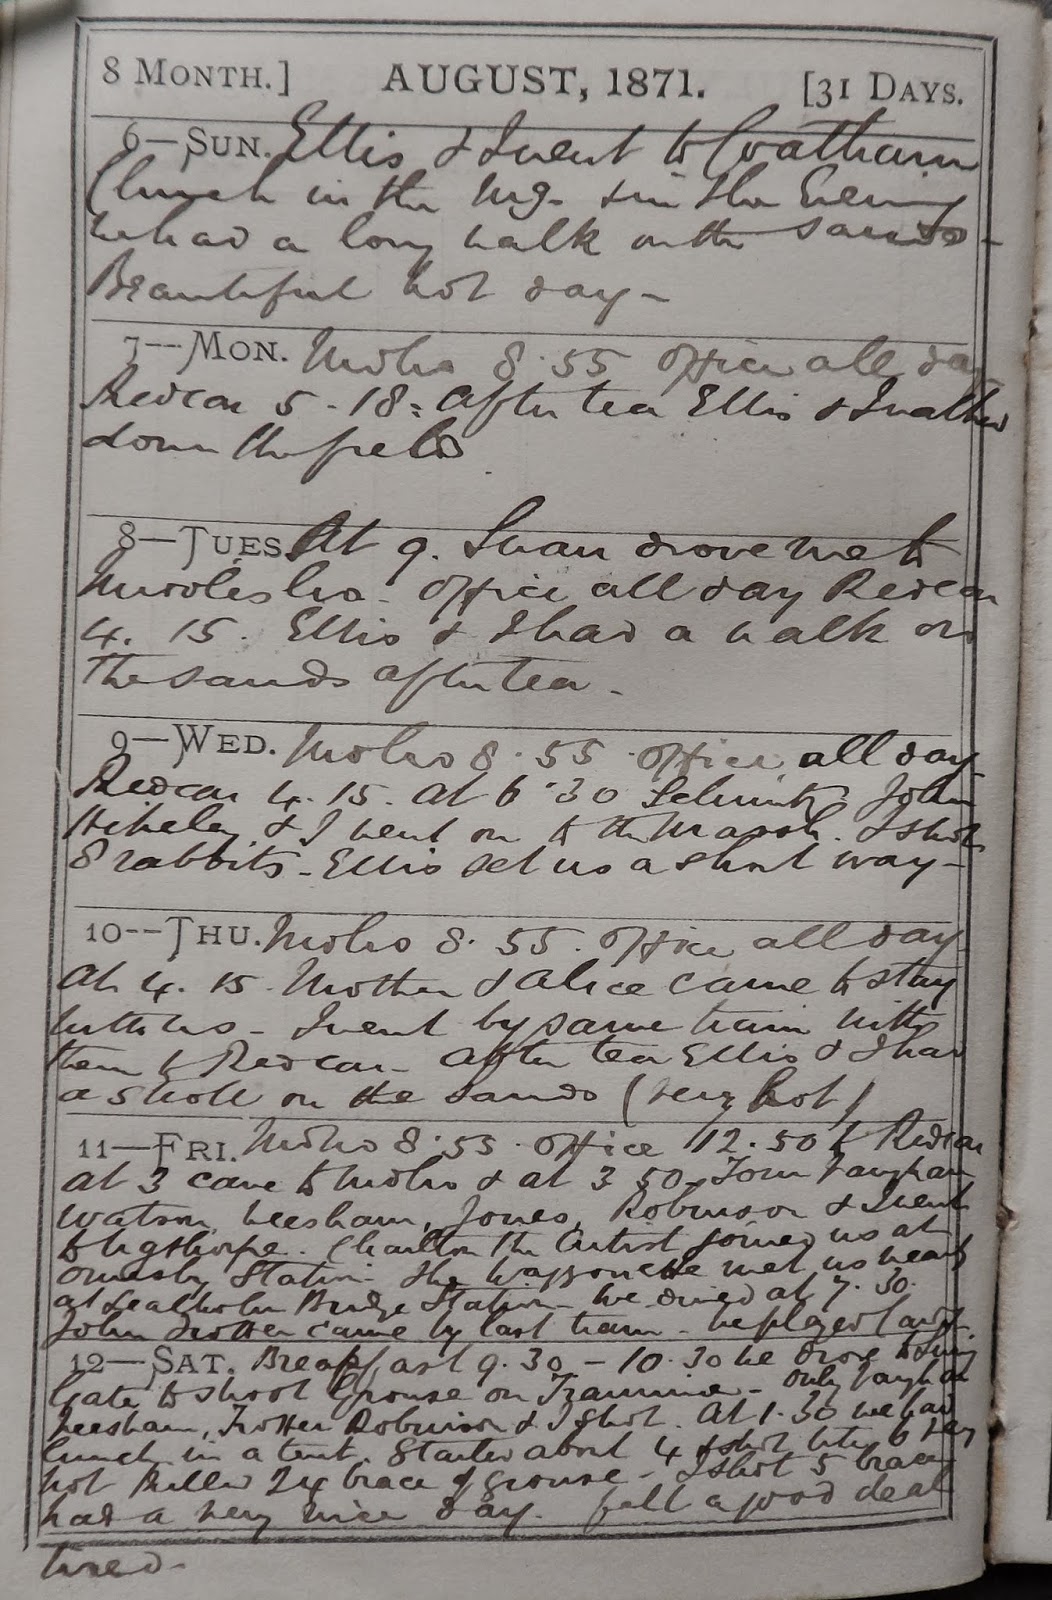 8 MONTH.] AUGUST, 1871. [31 DAYS.
6—SUN. Ellis & I went to Coatham
Church in the Mg. & in the Evening
We had a long walk on the Sands -
Beautiful hot day -
7—MON. Mdbro 8.55 office all day
Redcar 5-18: After tea Ellis & I walked
down the fields
8—TUES. At 9. Swan drove me to
Middlesbro. Office all day Redcar
4. 15. Ellis & I had a walk on
the sands after tea.
9—WED. Mdbro 8.55 office all day
Redcar 4.15. At 6.30 John
& I went on to the Marsh. I shot
8 rabbits - Ellis set us a short way -
10--THU. Mdbro 8.55. Office all day
At 4. 15 Mother & Alice came to stay
with us - I went by same train with
them to Redcar - After tea Ellis & I had
a stroll on the Sands (very hot)
11—FRI. Mdbro 8.55. Office 12.50 to Redcar
at 3 came to Mdbro & at 3 50 - Tom Vaughan
Watson, Leesham, Jones, Robinson & I went
to . Charlton the Artist joined us at
Ormesby Station - The Waggonette met us
at Lealholm Bridge Station - We dined at 7.30.
John Trotter came by last train - We played Cards.
12—SAT. Breakfast 9.30 - 10.30 we drove to
Gate to shoot Grouse on - Only Vaughan
Leesham, Trotter Robinson & I shot. At 1.30 we had
lunch in a tent. Started about 4 & shot till 6 very
hot killed 24 brace of grouse - I shot 5 brace
had a very nice day. felt a good deal
tired -